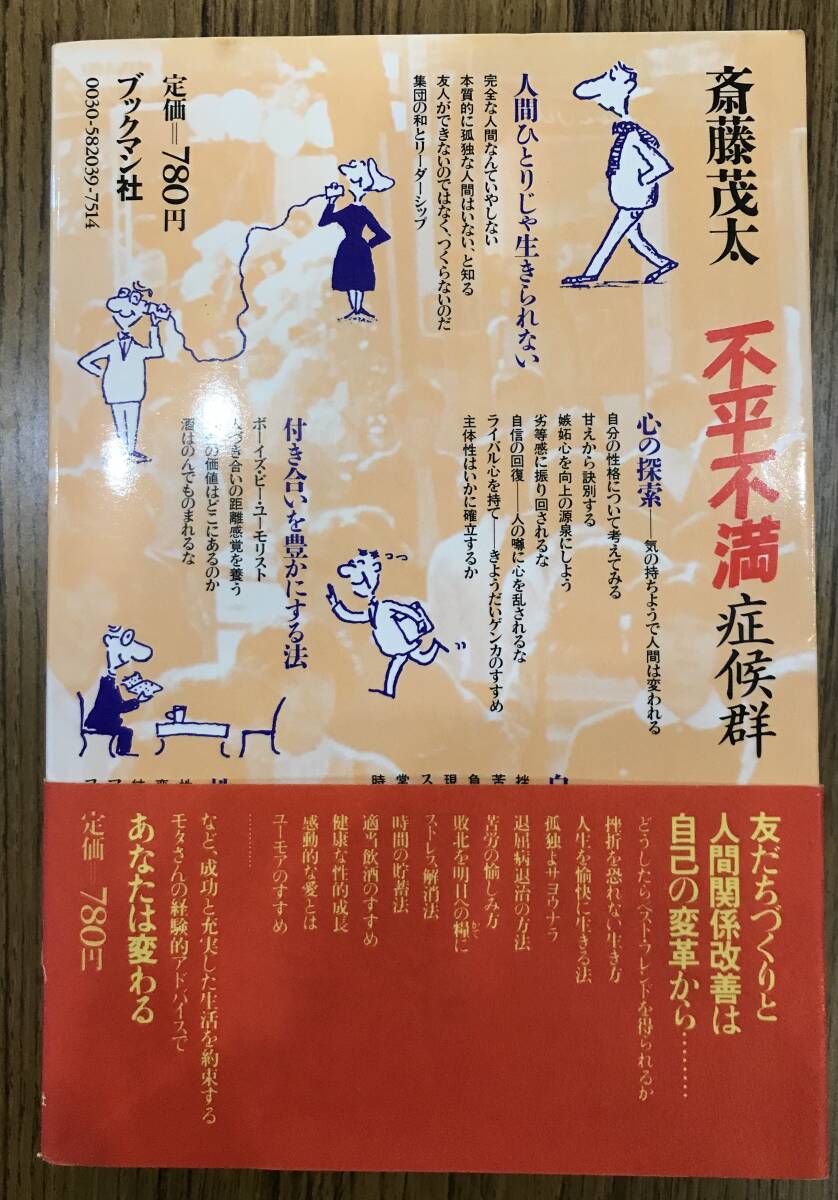 斎藤茂太
不平不満症候群
人間ひとりじゃ生きられない
完全な人間なんていやしない
本質的に孤独な人間はいない、と知る
友人ができないのではなく、つくらないのだ
集団の和とリーダーシップ
定価=780円
ブックマン社
0030-582039-7514
心の探索——気の持ちようで人間は変われる
自分の性格について考えてみる
甘えから訣別する
嫉妬心を向上の源泉にしよう
劣等感に振り回されるな
自信の回復——人の噂に心を乱されるな
ライバル心を持て——きようだいゲンカのすすめ
主体性はいかに確立するか
付き合いを豊かにする法
ボーイズ・ビー・ユーモリスト
人づき合いの距離感覚を養う
の価値はどこにあるのか
酒はのんでものまれるな
友だちづくりと
人間関係改善は
自己の変革から………
どうしたらベスト・フレンドを得られるか
挫折を恐れない生き方
人生を愉快に生きる法
孤独よサヨウナラ
退屈病退治の方法
苦労の愉しみ方
敗北を明日への糧に
かて
ストレス解消法
時間の貯蓄法
適当飲酒のすすめ
健康な性的成長
感動的な愛とは
ユーモアのすすめ
…………
など、成功と充実した生活を約束する
モタさんの経験的アドバイスで
あなたは変わる
定価=780円